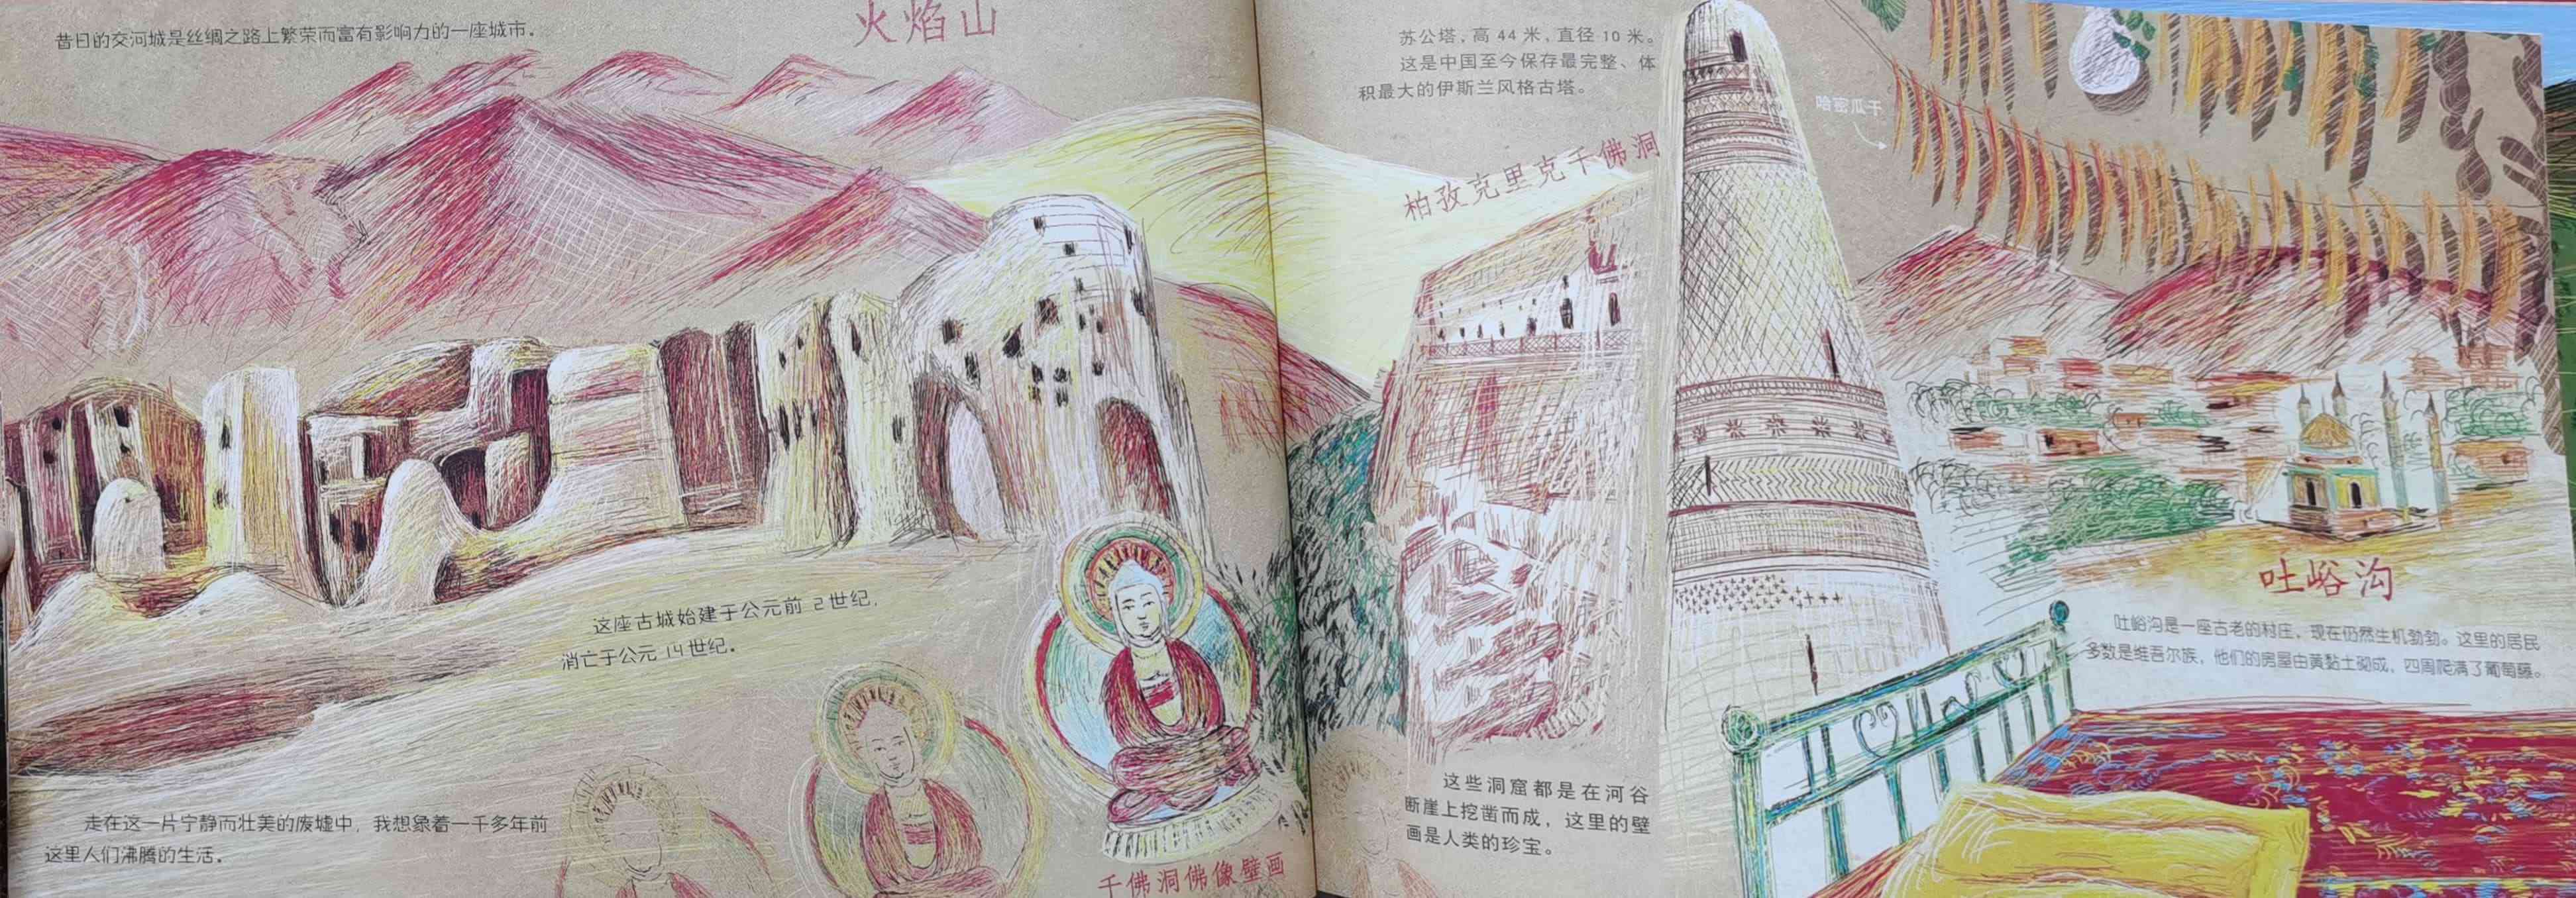 昔日的交河城是丝绸之路上繁荣而富有影响力的一座城市。
火焰山
这座古城始建于公元前 2世纪，
消亡于公元 14世纪。
走在这一片宁静而壮美的废墟中，我想象着一千多年前
这里人们沸腾的生活。
千佛洞佛像壁画
苏公塔，高 44 米，直径 10 米。
这是中国至今保存最完整、体
积最大的伊斯兰风格古塔。
柏孜克里克千佛洞
这些洞窟都是在河谷
断崖上挖凿而成，这里的壁
画是人类的珍宝。
哈密瓜干
吐峪沟
吐峪沟是一座古老的村庄，现在仍然生机勃勃。这里的居民
多数是维吾尔族，他们的房屋由黄黏土砌成，四周爬满了葡萄藤。